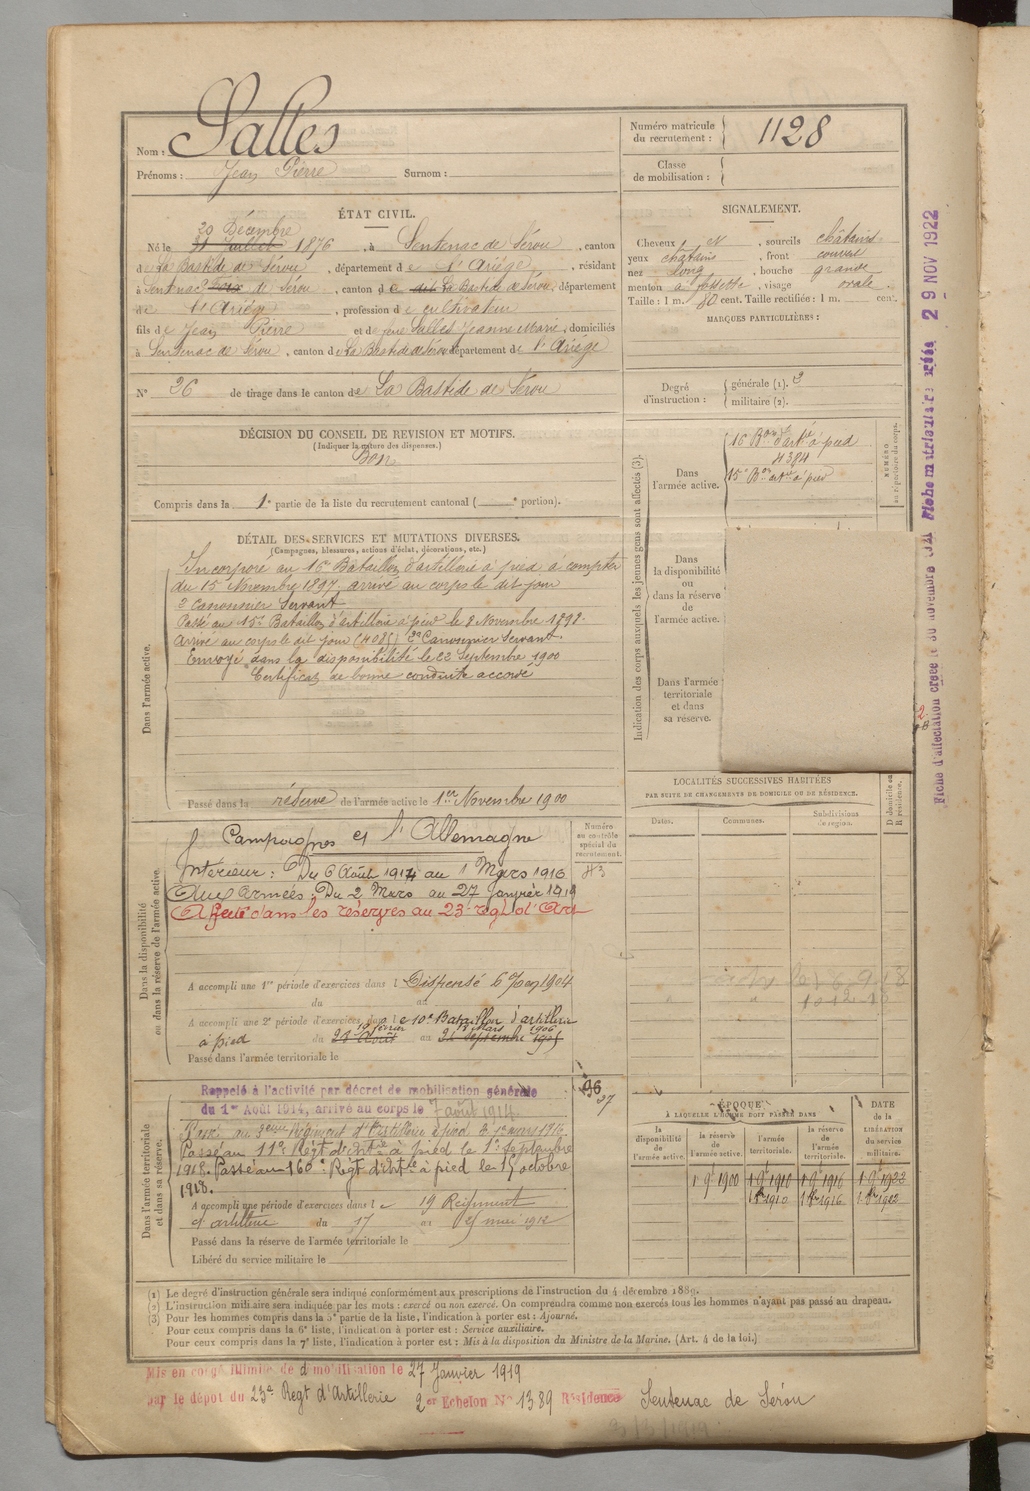 Nom : Salles
Prénoms : Jean Pierre Surnom :
Numéro matricule
du recrutement : 1128
Classe
de mobilisation :
ÉTAT CIVIL.
20 Décembre
Né le 31 Juillet 1876, à Sentenac de Sérou, canton
de La Bastide de Sérou, département de l'Ariège, résidant
à Sentenac Foix de Sérou, canton de dit La Bastide de Sérou, département
de l'Ariège, profession de cultivateur
fils de Jean Pierre et de feue Salles Jeanne Marie, domiciliés
à Sentenac de Sérou, canton de La Bastide de Sérou département de l'Ariège
N° 26 de tirage dans le canton de La Bastide de Sérou
SIGNALEMENT.
Cheveux N, sourcils châtains
yeux châtains, front couvert
nez long, bouche grande
menton à fossette, visage ovale.
Taille : 1 m. 80 cent. Taille rectifiée : 1 m. cent.
MARQUES PARTICULIÈRES :
Degré
d'instruction :
générale (1). 3
militaire (2).
DÉCISION DU CONSEIL DE REVISION ET MOTIFS.
(Indiquer la nature des dispenses.)
Bon
Compris dans la 1e partie de la liste du recrutement cantonal ( e portion).
DÉTAIL DES SERVICES ET MUTATIONS DIVERSES.
(Campagnes, blessures, actions d'éclat, décorations, etc.)
Dans l'armée active.
Incorporé au 16e Bataillon d'artillerie à pied à compter
du 15 Novembre 1897, arrivé au corps le dit jour
2e Canonnier Servant
Passé au 15e Bataillon d'artillerie à pied le 8 Novembre 1898.
Arrivé au corps le dit jour (4085) 2e Canonnier Servant.
Envoyé dans la disponibilité le 22 Septembre 1900
Certificat de bonne conduite accordé
Passé dans la réserve de l'armée active le 1er Novembre 1900
Indication des corps auxquels les jeunes gens sont affectés (3).
Dans
l'armée active.
16 Bon d'artie à pied
4384
15e Bon artie à pied
NUMÉRO
au répertoire du corps.
Dans
la disponibilité
ou
dans la réserve
de
l'armée active.
Dans l'armée
territoriale
et dans
sa réserve.
LOCALITÉS SUCCESSIVES HABITÉES
PAR SUITE DE CHANGEMENTS DE DOMICILE OU DE RÉSIDENCE.
Dates.
Communes.
Subdivisions
de région.
D domicile ou
R résidence.
Dans la disponibilité
ou dans la réserve de l'armée active.
Campagnes et l'Allemagne
Intérieur : Du 6 Août 1914 au 1 Mars 1916
Aux Armées : Du 2 Mars au 27 Janvier 1919
Affecté dans les réserves au 23e régt d'Art
Numéro
au contrôle
spécial du
recrutement.
43
A accompli une 1re période d'exercices dans l Dispensé 6 Juin 1904
du au
A accompli une 2e période d'exercices dans le 10e Bataillon d'artillerie
à pied du 21 Août au 24 Septembre 1905
Passé dans l'armée territoriale le
Dans l'armée territoriale
et dans sa réserve.
Rappelé à l'activité par décret de mobilisation générale
du 1er Août 1914, arrivé au corps le 7 août 1914.
Passé au 3ème Régiment d'Artillerie à pied le 1er mars 1916
Passé au 11e Régt d'Artie à pied le 1er Septembre
1918. Passé au 160e Régt d'Artie à pied le 15 octobre
1918.
A accompli une période d'exercices dans le 19 Régiment
d'artillerie du 17 au 25 mai 1912
Passé dans la réserve de l'armée territoriale le
Libéré du service militaire le
96
ÉPOQUE
À LAQUELLE L'HOMME DOIT PASSER DANS
la
disponibilité
de
l'armée active.
la réserve
de
l'armée active.
l'armée
territoriale.
la réserve
de
l'armée
territoriale.
DATE
de la
LIBÉRATION
du service
militaire.
1 9e 1900 1 9e 1910 1 9e 1916 1 9e 1922
1 8re 1910 1 8re 1916 1 8re 1922
(1) Le degré d'instruction générale sera indiqué conformément aux prescriptions de l'instruction du 4 décembre 1889.
(2) L'instruction militaire sera indiquée par les mots : exercé ou non exercé. On comprendra comme non exercés tous les hommes n'ayant pas passé au drapeau.
(3) Pour les hommes compris dans la 5e partie de la liste, l'indication à porter est : Ajourné.
Pour ceux compris dans la 6e liste, l'indication à porter est : Service auxiliaire.
Pour ceux compris dans la 7e liste, l'indication à porter est : Mis à la disposition du Ministre de la Marine. (Art. 4 de la loi.)
Mis en congé illimité de démobilisation le 27 Janvier 1919
par le dépôt du 23e Régt d'Artillerie 2er Echelon N° 1389 Résidence Sentenac de Sérou
3/3/1919
Fiche d'affectation créée le 30 novembre 1921 Fiche matriculaire créée 29 NOV 1922